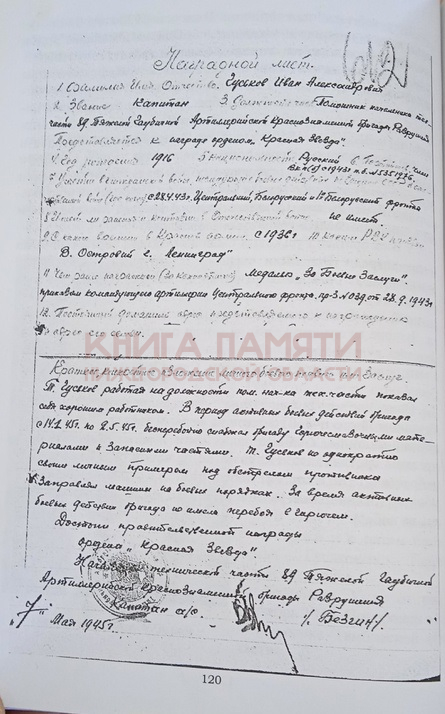 612
Наградной лист.
1. Фамилия Имя Отчество. Гуськов Иван Александрович
2. Звание Капитан 3. Должность, часть Помощник начальника тех.
части 89 Тяжелой Гаубичной Артиллерийской Краснознаменной бригады Разрушения
Представляется к награде орденом "Красная Звезда".
4. Год рождения 1916 5. Национальность Русский 6.
Вкп(б) с 1943 п.б. № 5351936
с 28.4.43г. Центральный, Белорусский и 1й Белорусский фронты
не имеет
9. С какого времени в Красной армии с 1936 г 10. Каким РВК призван
В. Островский г. Ленинград"
11. Чем ранее награжден Медалью "За Боевые Заслуги".
приказом командующего артиллерии Центрального фронта пр-з № 029 от 28.9.1943г
12. Постоянный домашний адрес представляемого к награждению
и адрес его семьи.
КНИГА ПАМЯТИ
НИЖЕГОРОДСКОЙ ОБЛАСТИ
Краткое конкретное изложение личного боевого подвига или заслуг.
Т. Гуськов работая на должности пом. нач-ка тех. части показал
себя хорошим работником. В период активных боевых действий бригады
с 14.1.45г. по 2.5.45г. бесперебойно снабжал бригаду горюче-смазочными мате-
риалами и запасными частями. т. Гуськов неоднократно
своим личным примером под обстрелом противника
заправлял машины на боевых порядках. За время активных
боевых действий бригада не имела перебоя в горючем.
Достоин правительственной награды
ордена "Красная Звезда".
Начальник технической части 89 Тяжелой Гаубичной
Артиллерийской Краснознаменной бригады Разрушения
Капитан а/с / Безгин /
"7" Мая 1945г
120